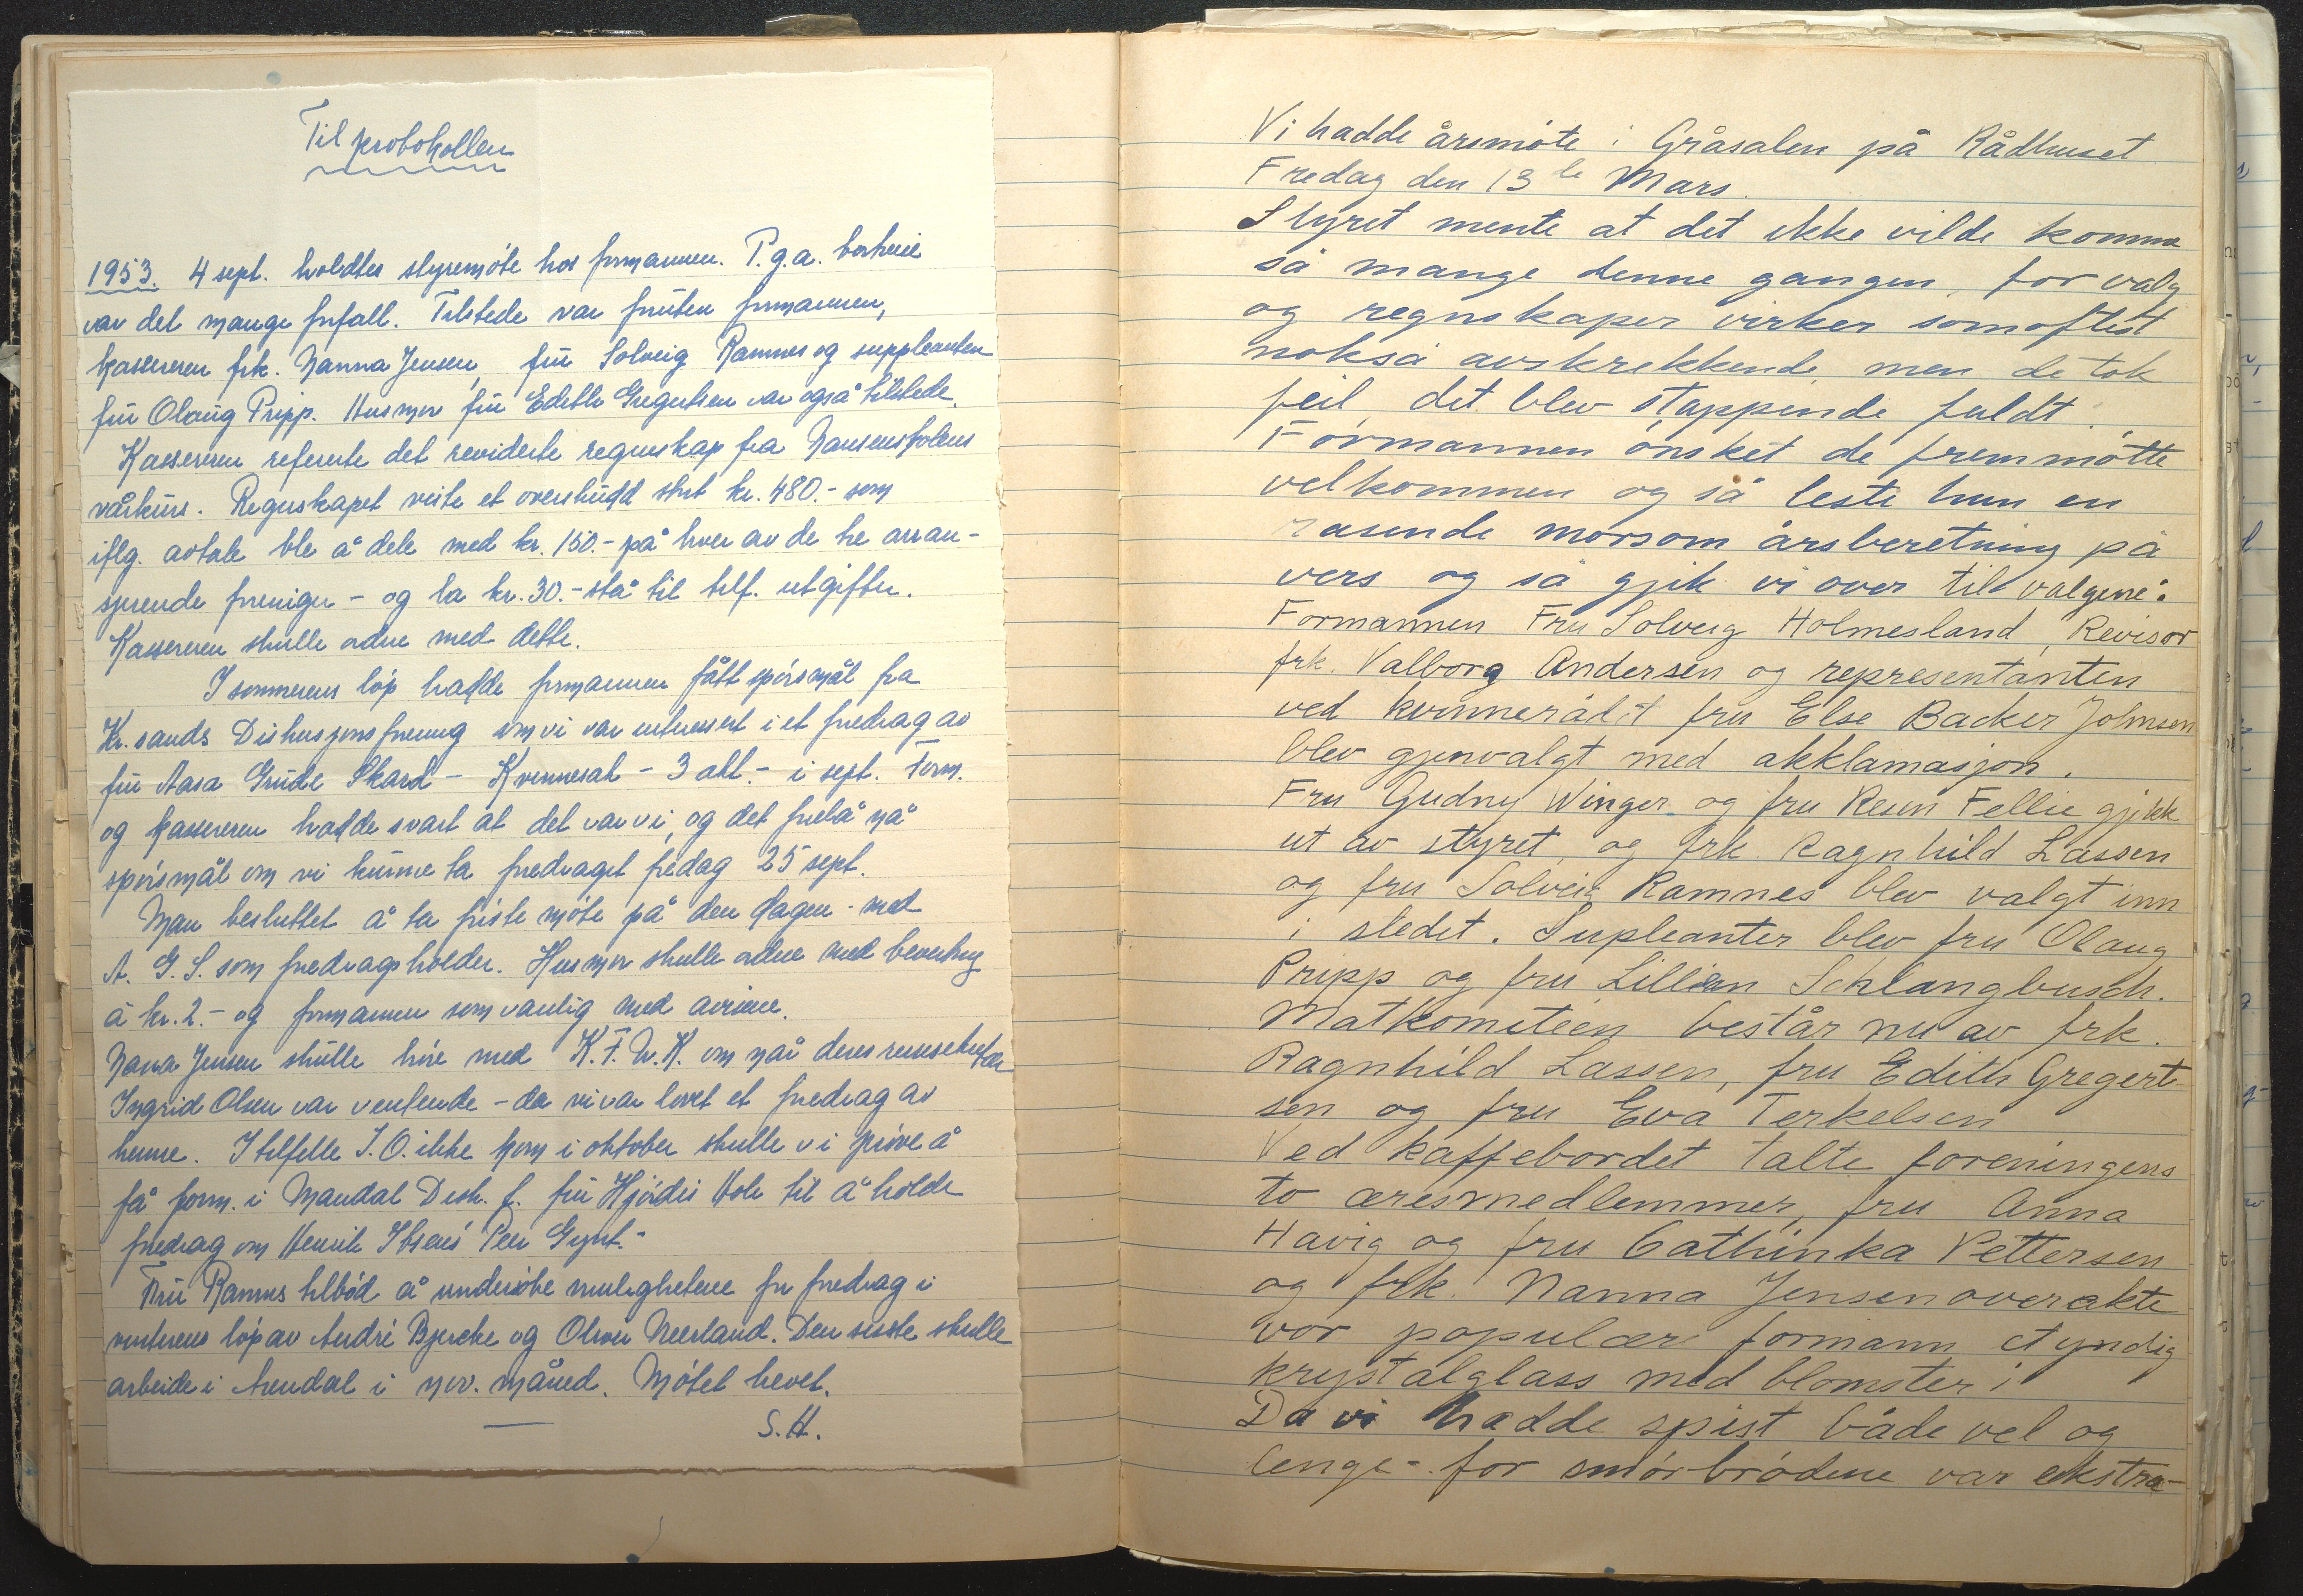 Til protokollen
1953. 4 sept. holdtes styremøte hos formannen. P.g.a. bortreise
var det mange forfall. Tilstede var foruten formannen,
kassereren frk. Nanna Jensen, fru Solveig Ramnes og suppleanten
fru Olaug Pripp. Husmor fru Edith Gregertsen var også tilstede.
Kassereren refererte det reviderte regnskap fra Nansenskolens
vårkurs. Regnskapet viste et overskudd stort kr. 480.- som
iflg. avtale ble å dele med kr. 150.- på hver av de tre arran-
sjerende foreninger - og la kr. 30.- stå til telf. utgifter.
Kassereren skulle ordne med dette.
I sommerens løp hadde formannen fått spørsmål fra
Kr.sands Diskusjonsforening om vi var interessert i et foredrag av
fru Aasa Gruda Skard - Kvinnesak - 3 akt. - i sept. Form.
og kassereren hadde svart at det var vi, og det forelå nå
spørsmål om vi kunne ta foredraget fredag 25 sept.
Man besluttet å ta første møte på den dagen - med
A. G. S. som foredragsholder. Husmor skulle ordne med bevertning
à kr. 2.- og formannen som vanlig med avisene.
Nanna Jensen skulle høre med K.F.U.K. om når deres reisesekretær
Ingrid Olsen var ventende - da vi var lovet et foredrag av
henne. I tilfelle I.O. ikke kom i oktober skulle vi prøve å
få form. i Mandal Disk. f. fru Hjørdis Hole til å holde
foredrag om Henrik Ibsens Peer Gynt.-
Fru Ramnes tilbød å undersøke mulighetene for foredrag i
vinterens løp av André Bjercke og Olwer Neerland. Den siste skulle
arbeide i Arendal i nov. måned. Møtet hevet.
S.H.
Vi hadde årsmøte i Gråsalen på Rådhuset
Fredag den 13de Mars.
Styret mente at det ikke vilde komme
så mange denne gangen, for valg
og regnskaper virker somoftest
nokså avskrekkende, men de tok
feil, det blev stappende fuldt.
Formannen ønsket de fremmøtte
velkommen og så leste hun en
rasende morsom årsberetning på
vers og så gjik vi over til valgene:
Formannen Fru Solveig Holmesland, Revisor
frk. Valborg Andersen og representanten
ved kvinnerådet fru Else Backer Johnsen
blev gjenvalgt med akklamasjon.
Fru Gudny Winger og fru Resen Fellie gjekk
ut av styret, og frk. Ragnhild Lassen
og fru Solveig Ramnes blev valgt inn
i stedet. Supleanter blev fru Olaug
Pripp og fru Lillian Schlangbusch.
Matkomiteen består nu av frk.
Ragnhild Lassen, fru Edith Gregert-
sen og fru Eva Terkelsen
Ved kaffebordet talte foreningens
to æresmedlemmer, fru Anna
Havig og fru Cathinka Pettersen
og frk. Nanna Jensen overrakte
vor populære formann et yndig
krystalglass med blomster i
Da vi hadde spist både vel og
lenge - for smørbrødene var ekstra-